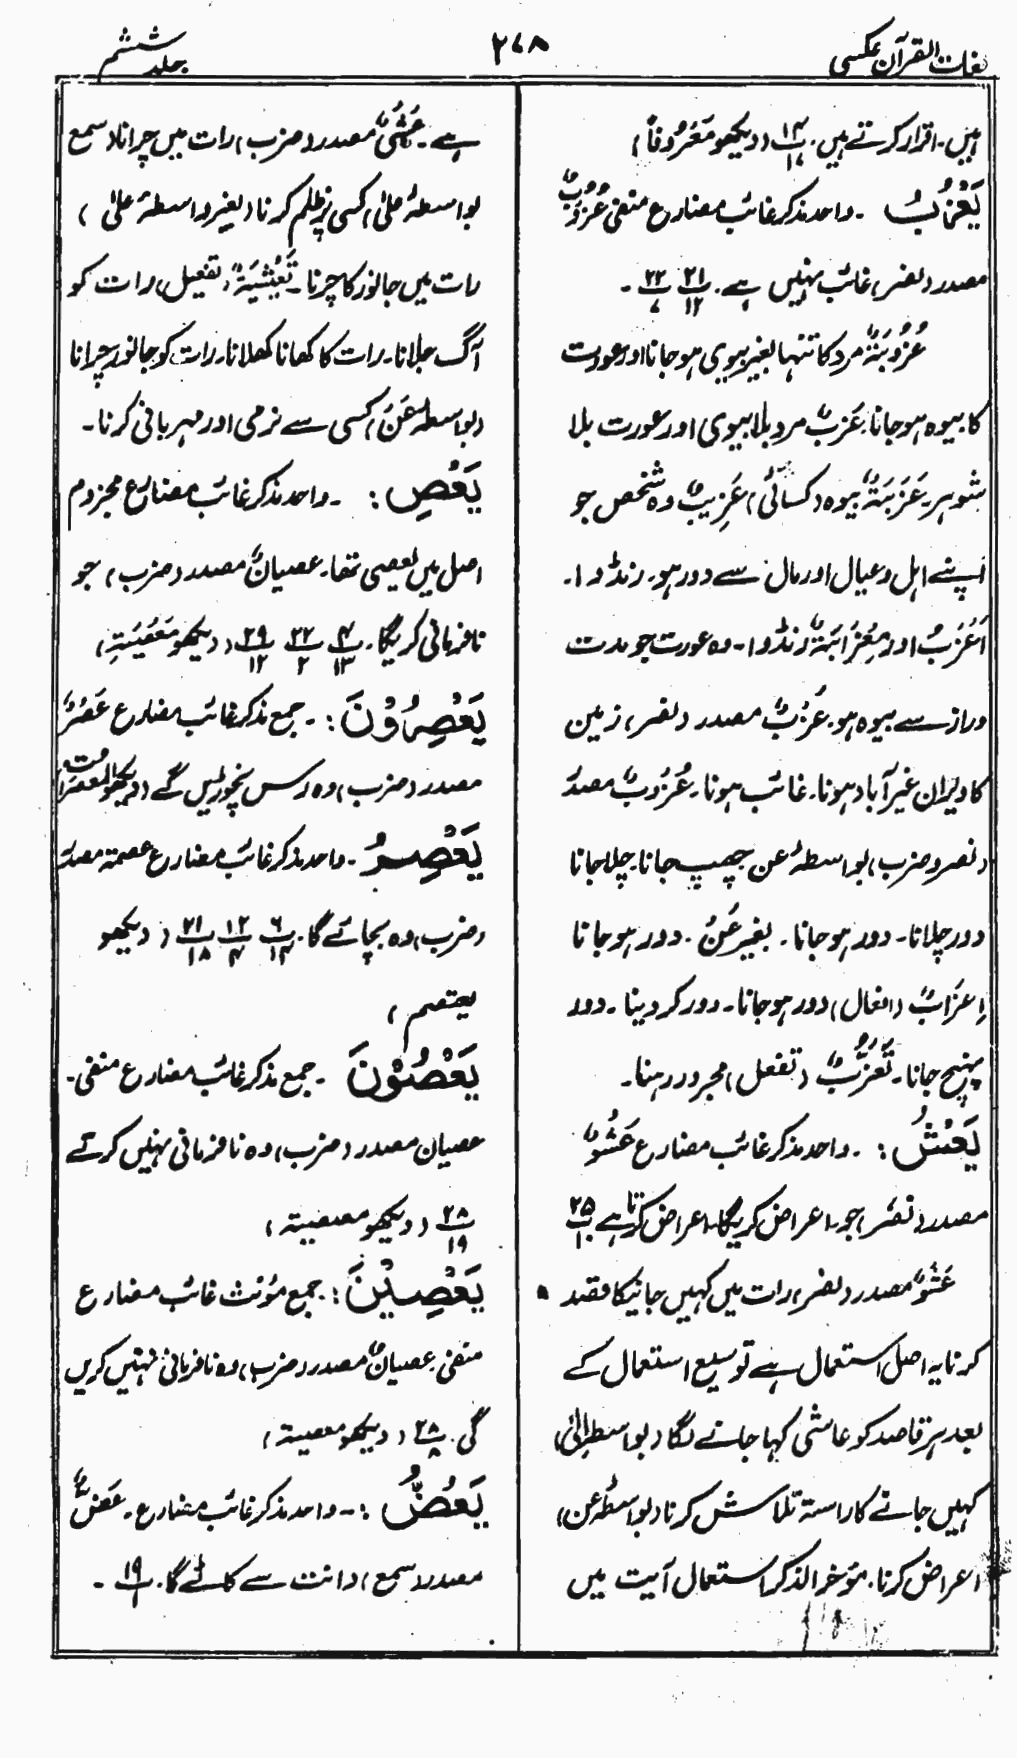 لغات القرآن عکسی
۲۷۸
جلد ششم
ہیں۔ اقرار کرتے ہیں۔ (دیکھو مَعْرُوفاً)
یَعْزُبُ ۔ واحد مذکر غائب مضارع منفی عُزُوْبٌ
مصدر (نصر) غائب نہیں ہے۔ ۲۱/۱۲ ۲۲/۷ ۔
عُزُوْبَۃٌ مرد کا تنہا بغیر بیوی ہو جانا اور عورت
کا بیوہ ہو جانا۔ عَزَبٌ مرد بلا بیوی اور عورت بلا
شوہر۔ عَزَبَۃٌ بیوہ (کسائی) عَزِیبٌ وہ شخص جو
اپنے اہل و عیال اور مال سے دور ہو۔ رنڈوا۔
اَعْزَبُ اور مِعْزَابَۃٌ رنڈوا۔ وہ عورت جو مدت
دراز سے بیوہ ہو۔ عَزْبٌ مصدر (نصر) زمین
کا ویران غیر آباد ہونا۔ غائب ہونا۔ عُزُوْبٌ مصدر
(نصر و ضرب) بواسطۂ عن چھپ جانا۔ چلا جانا
دور چلانا۔ دور ہو جانا۔ بغیر عَنْ ۔ دور ہو جانا
اِعْزَابٌ (افعال) دور ہو جانا۔ دور کر دینا ۔ دور
پہنچ جانا۔ تَعَزُّبٌ (تفعل) مجرد رہنا۔
یَعْشُ : ۔ واحد مذکر غائب مضارع عَشْوٌ
مصدر (نصر) جو اعراض کریگا۔ اعراض کرتا ہے ۲۵/۱۰
عَشْوٌ مصدر (نصر) رات میں کہیں جانیکا قصد
کرنا یہ اصل استعمال ہے توسیع استعمال کے
بعد ہر قاصد کو عاشی کہا جانے لگا (بواسطہ اِلیٰ)
کہیں جانے کا راستہ تلاش کرنا (بواسطۂ عن)
اعراض کرنا۔ مؤخر الذکر استعمال آیت میں
ہے۔ عَشْیٌ مصدر (ضرب) رات میں چرانا (سمع
بواسطۂ علیٰ) کسی پر ظلم کرنا (بغیر واسطۂ علیٰ )
رات میں جانور کا چرنا ۔ تَعْشِیَۃٌ (تفعیل) رات کو
آگ جلانا۔ رات کا کھانا کھلانا۔ رات کو جانور چرانا
(بواسطہ عَنْ) کسی سے نرمی اور مہربانی کرنا۔
یَعْصِ : ۔ واحد مذکر غائب مضارع مجزوم
اصل میں یعصی تھا۔ عصیانٌ مصدر (ضرب) جو
نافرمانی کریگا۔ ۴/۱۳ ۲۲/۲ ۲۹/۱۲ (دیکھو مَعْصِیَتِ)
یَعْصِرُوْنَ : ۔ جمع مذکر غائب مضارع عَصْرٌ
مصدر (ضرب) وہ رس نچوڑیں گے (دیکھو المعصرات)
یَعْصِمُ ۔ واحد مذکر غائب مضارع عصمۃ مصدر
(ضرب) وہ بچائے گا۔ ۶/۱۴ ۱۲/۴ ۲۱/۱۸ ( دیکھو
یعتصم )
یَعْصُوْنَ ۔ جمع مذکر غائب مضارع منفی۔
عصیان مصدر (ضرب) وہ نافرمانی نہیں کرتے
۲۸/۱۹ (دیکھو معصیتہ)
یَعْصِیْنَ : جمع مؤنث غائب مضارع
منفی۔ عصیانٌ مصدر (ضرب) وہ نافرمانی نہیں کریں
گی۔ ۲۸/۸ (دیکھو معصیتہ)
یَعَضُّ : ۔ واحد مذکر غائب مضارع۔ عَضٌّ
مصدر (سمع) دانت سے کاٹے گا۔ ۱۹/۱ ۔